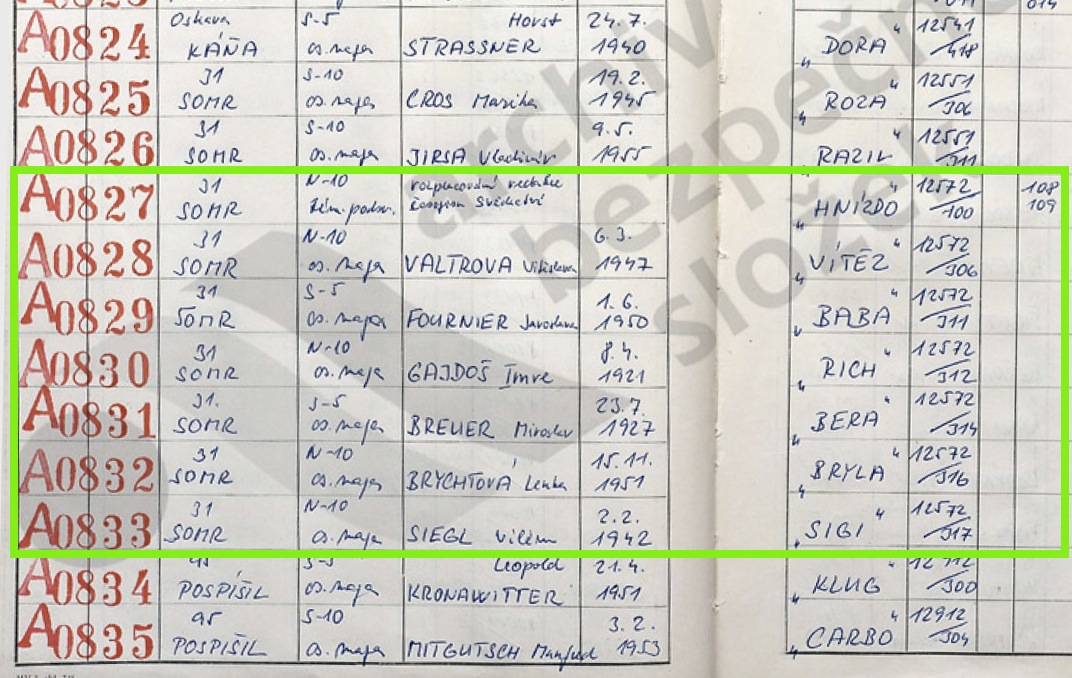 A0824 Ostrava S-5 Horst 24.7. 12541
KÁŇA os. maja STRASSNER 1940 " DORA " /418
A0825 31 S-10 19.2. 12551
SOMR os. maja CROS Marika 1945 " ROZA " /306
A0826 31 S-10 9.5. 12551
SOMR os. maja JIRSA Vladimír 1955 " RAZIL " /311
A0827 31 N-10 12572 108
SOMR HNÍZDO " /100 109
A0828 31 N-10 6.3. 12572
SOMR os. maja VALTROVA 1947 " VÍTĚZ " /306
A0829 31 S-5 1.6. 12572
SOMR os. maja FOURNIER Jaroslava 1950 " BABA " /311
A0830 31 N-10 8.4. 12572
SOMR os. maja GAJDOŠ Imre 1921 " RICH " /312
A0831 31. S-5 23.7. 12572
SOMR os. maja BREUER Miroslav 1927 " BERA /314
A0832 31 N-10 15.11. 12572
SOMR os. maja BRYCHTOVÁ Lenka 1951 " BRYLA " /316
A0833 31 N-10 2.2. 12572
SOMR os. maja SIEGL Vilém 1942 " SIGI " /317
A0834 S-5 Leopold 21.4.
POSPÍŠIL os. maja KRONAWITTER 1951 " KLUG " /300
A0835 95 S-10 3.2. 12912
POSPÍŠIL os. maja MITGUTSCH Manfred 1953 " CARBO " /304
archiv
bezpečn
složek